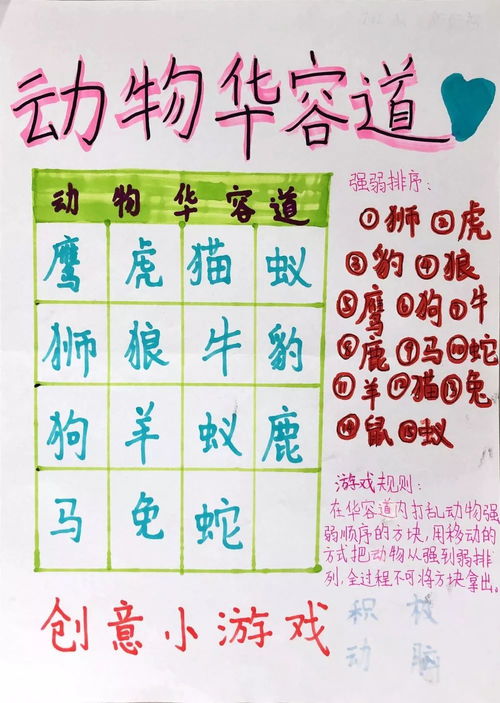 动物华容道
动物华容道
鹰 虎 猫 蚁
狮 狼 牛 豹
狗 羊 蚁 鹿
马 兔 蛇
强弱排序:
①狮 ②虎
③豹 ④狼
⑤鹰 ⑥狗 ⑦牛
⑧鹿 ⑨马 ⑩蛇
⑪羊 ⑫猫 ⑬兔
⑭鼠 ⑮蚁
游戏规则:
在华容道内打乱动物强
弱顺序的方块,用移动的
方式把动物从强到弱排
列.全过程不可将方块拿出。
创意小游戏
积极
动脑